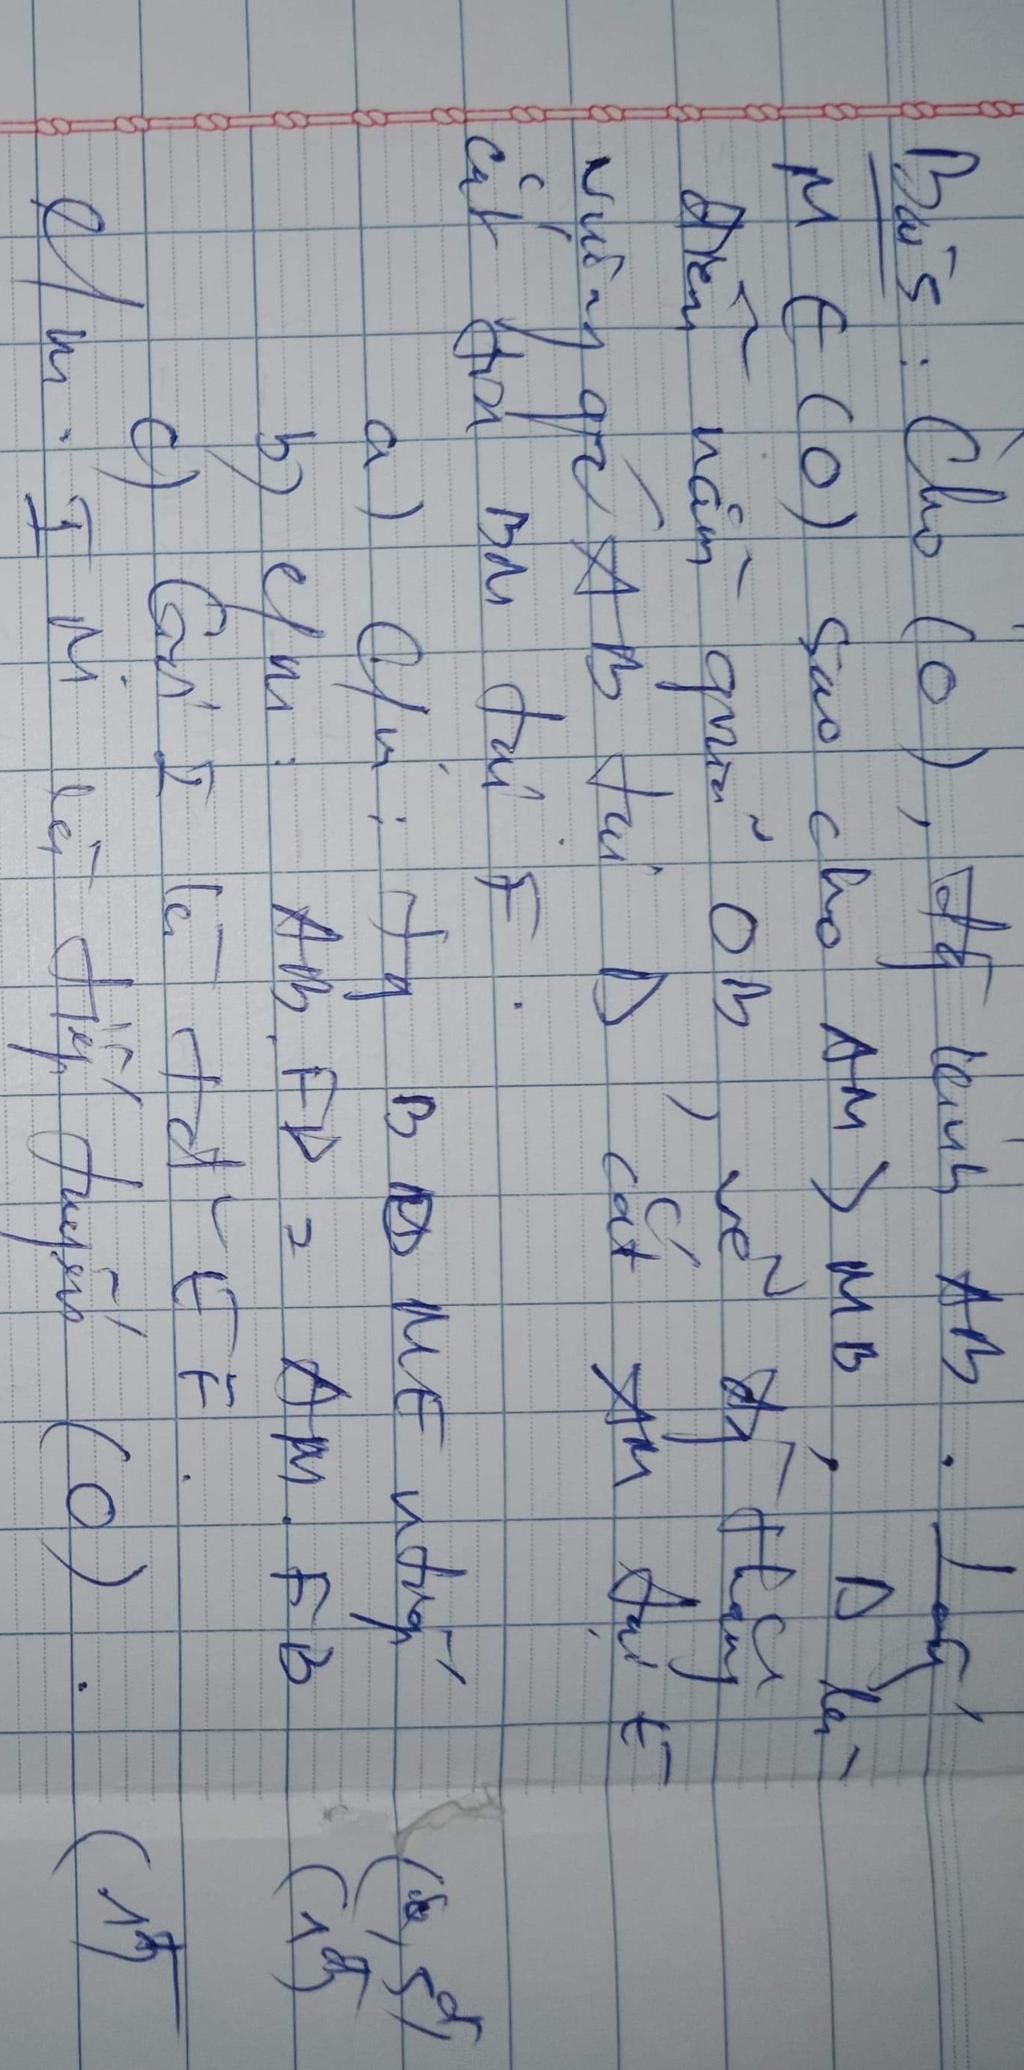 Bài 5: Cho (O), đg kính AB. Lấy
M ∈ (O) sao cho AM > MB. D là
điểm nằm giữa OB, vẽ đg thẳng
vuông góc AB tại D, cắt AM tại E
cắt tia BM tại F.
a) C/m: Tg BDME ntiếp (0,5đ)
b) c/m: AB.FD = AM.FB (1đ)
c) Gọi I là tđ EF.
c/m: IM là tiếp tuyến (O). (1đ)